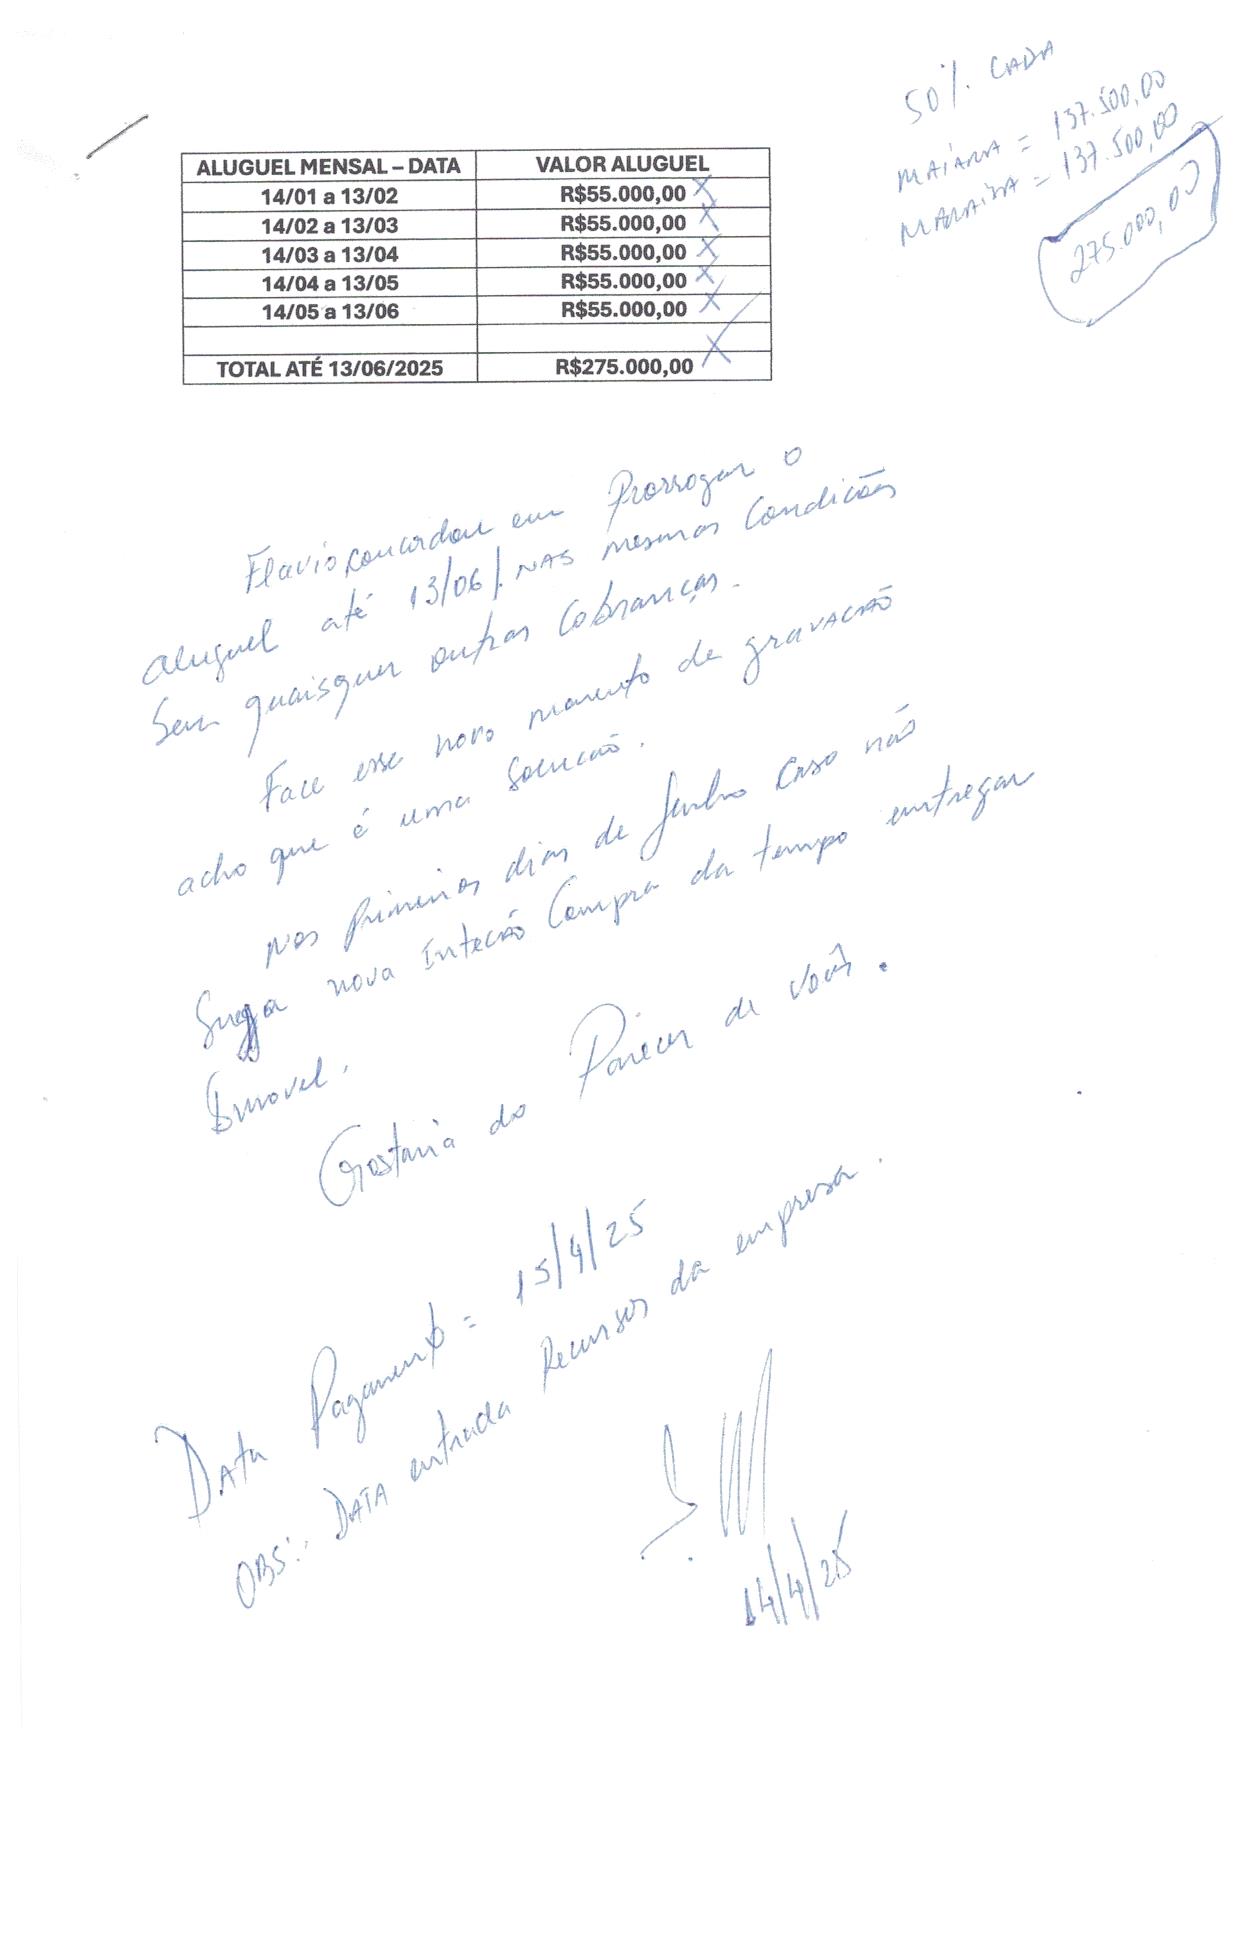 50% CADA
MAIARA = 137.500,00
MARAISA = 137.500,00
275.000,00
ALUGUEL MENSAL – DATA VALOR ALUGUEL
14/01 a 13/02 R$55.000,00 X
14/02 a 13/03 R$55.000,00 X
14/03 a 13/04 R$55.000,00 X
14/04 a 13/05 R$55.000,00 X
14/05 a 13/06 R$55.000,00 X
TOTAL ATÉ 13/06/2025 R$275.000,00 X
Flavio concordou em Prorrogar o
aluguel até 13/06/. NAS mesmas Condições
Sem quaisquer outras Cobranças.
Face esse novo momento de gravação
acho que é uma Solução.
Nos primeiros dias de Junho caso não
Surja nova Inteção Compra da tempo entregar
Imovel.
Gostaria do Parecer de vocês.
Data Pagamento = 15/4/25
OBS:. DATA entrada Recursos da empresa.
14/4/25